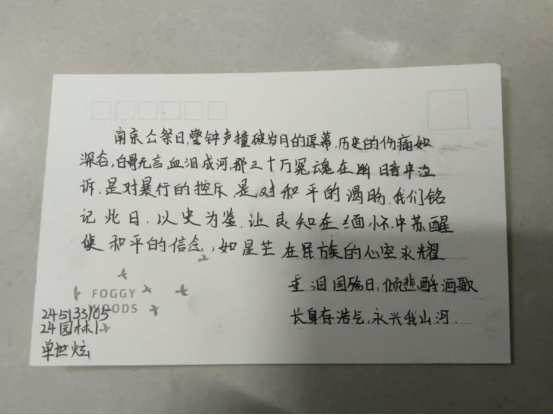 南京公祭日,警钟声撞破岁月的厚幕,历史的伤痛如
深谷,白骨无言血泪成河那三十万冤魂在幽暗中泣
诉,是对暴行的控斥是对和平的渴盼,我们铭
记此日,以史为鉴,让良知在缅怀中苏醒
使和平的信念,如星芒在民族的心空永耀
垂泪国殇日,倾悲酹酒歌
长身存浩气,永兴我山河
FOGGY
WOODS
245133105
24园林1
单世炫